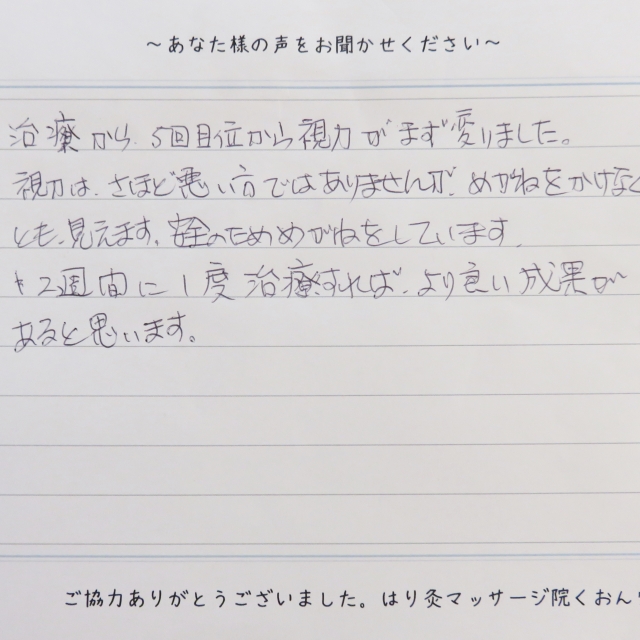 ～あなた様の声をお聞かせください～
治療から、5回目位から視力がまず変りました。
視力は、さほど悪い方ではありませんが、めがねをかけなく
とも、見えます。安全のためめがねをしています。
2週間に1度治療すれば、より良い成果が
あると思います。
ご協力ありがとうございました。はり灸マッサージ院くおん